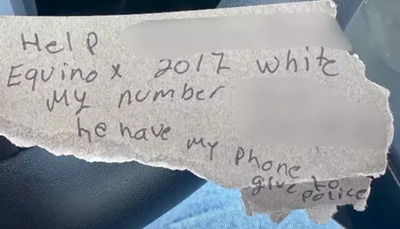 Help
Equinox 2017 white
My number
he have my phone
give to
police